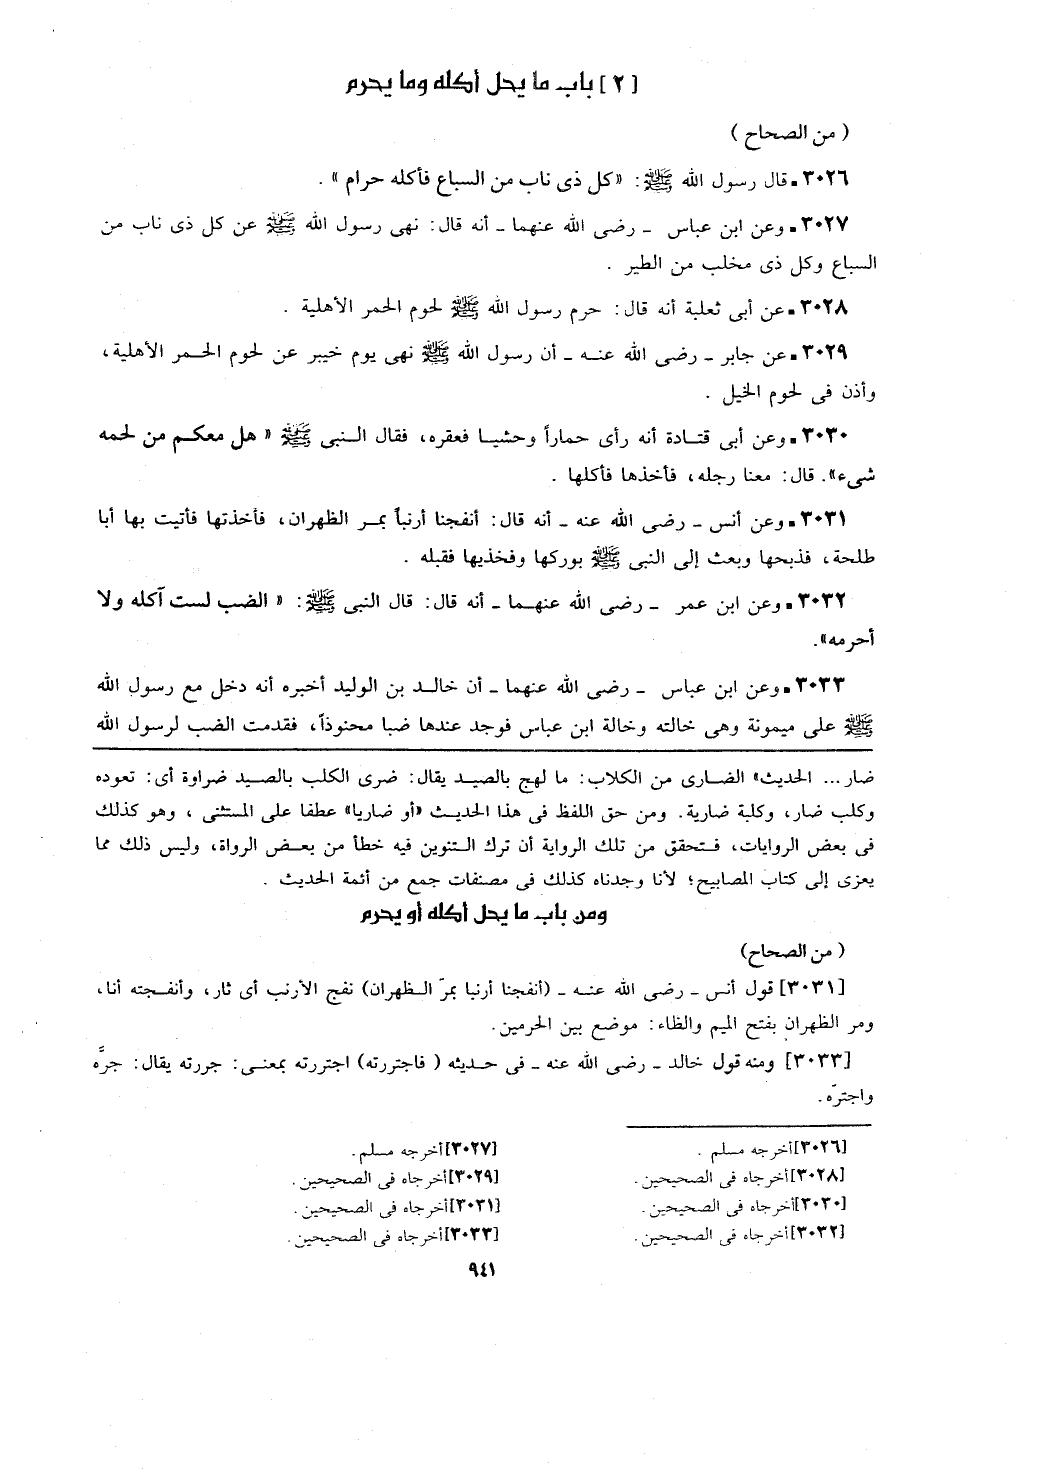 [٢] باب ما يحل أكله وما يحرم
( من الصحاح )
٣٠٢٦ـ قال رسول الله ﷺ: «كل ذى ناب من السباع فأكله حرام » .
٣٠٢٧ـ وعن ابن عباس ـ رضى الله عنهما ـ أنه قال: نهى رسول الله ﷺ عن كل ذى ناب من
السباع وكل ذى مخلب من الطير .
٣٠٢٨ـ عن أبى ثعلبة أنه قال: حرم رسول الله ﷺ لحوم الحمر الأهلية .
٣٠٢٩ـ عن جابر ـ رضى الله عنه ـ أن رسول الله ﷺ نهى يوم خيبر عن لحوم الحمر الأهلية،
وأذن فى لحوم الخيل .
٣٠٣٠ـ وعن أبى قتادة أنه رأى حماراً وحشيا فعقره، فقال النبى ﷺ « هل معكم من لحمه
شىء». قال: معنا رجله، فأخذها فأكلها .
٣٠٣١ـ وعن أنس ـ رضى الله عنه ـ أنه قال: أنفجنا أرنباً بمر الظهران، فأخذتها فأتيت بها أبا
طلحة، فذبحها وبعث إلى النبى ﷺ بوركها وفخذيها فقبله .
٣٠٣٢ـ وعن ابن عمر ـ رضى الله عنهما ـ أنه قال: قال النبى ﷺ: « الضب لست آكله ولا
أحرمه».
٣٠٣٣ـ وعن ابن عباس ـ رضى الله عنهما ـ أن خالد بن الوليد أخبره أنه دخل مع رسول الله
ﷺ على ميمونة وهى خالته وخالة ابن عباس فوجد عندها ضبا محنوذاً، فقدمت الضب لرسول الله
ضار... الحديث» الضارى من الكلاب: ما لهج بالصيد يقال: ضرى الكلب بالصيد ضراوة أى: تعوده
وكلب ضار، وكلبة ضارية. ومن حق اللفظ فى هذا الحديث «أو ضاريا» عطفا على المستثنى ، وهو كذلك
فى بعض الروايات، فتحقق من تلك الرواية أن ترك التنوين فيه خطأ من بعض الرواة، وليس ذلك مما
يعزى إلى كتاب المصابيح؛ لأنا وجدناه كذلك فى مصنفات جمع من أئمة الحديث .
ومن باب ما يحل أكله أو يحرم
( من الصحاح)
[٣٠٣١] قول أنس ـ رضى الله عنه ـ (أنفجنا أرنبا بمرّ الظهران) نفج الأرنب أى ثار، وأنفجته أنا،
ومر الظهران بفتح الميم والظاء: موضع بين الحرمين.
[٣٠٣٣] ومنه قول خالد ـ رضى الله عنه ـ فى حديثه ( فاجتررته) اجتررته بمعنى: جررته يقال: جرَّه
واجترّه.
[٣٠٢٦]أخرجه مسلم .
[٣٠٢٧]أخرجه مسلم.
[٣٠٢٨]أخرجاه فى الصحيحين.
[٣٠٢٩]أخرجاه فى الصحيحين.
[٣٠٣٠]أخرجاه فى الصحيحين.
[٣٠٣١]أخرجاه فى الصحيحين.
[٣٠٣٢]أخرجاه فى الصحيحين.
[٣٠٣٣]أخرجاه فى الصحيحين.
٩٤١